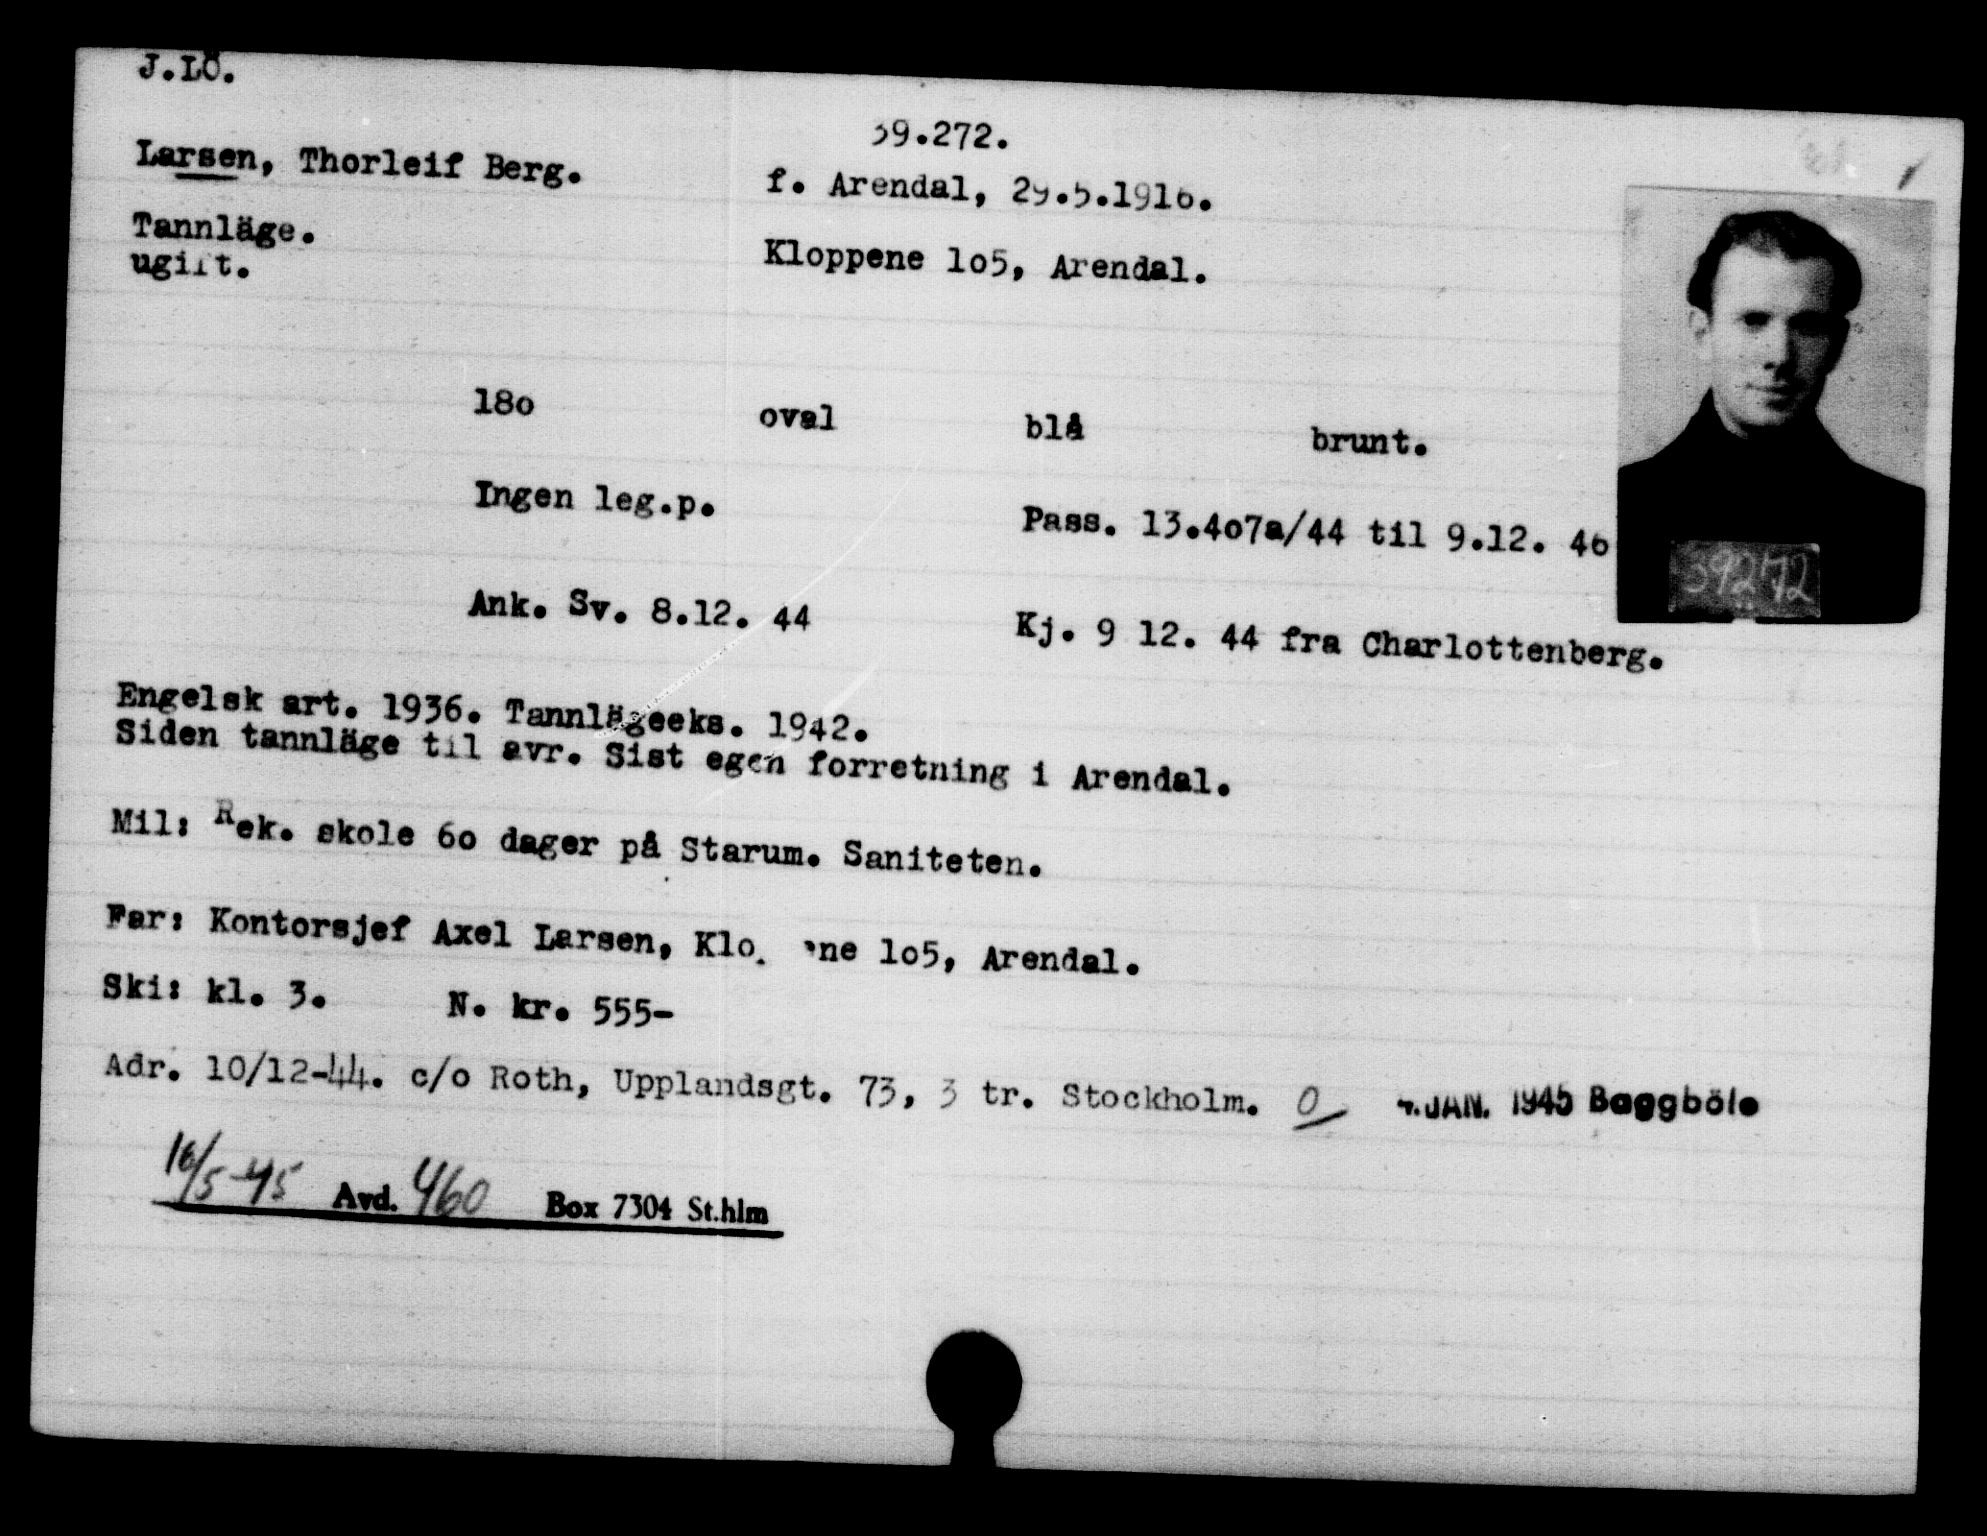 J.LÖ.
39.272.
Larsen, Thorleif Berg.
f. Arendal, 29.5.1916.
Tannläge.
ugift.
Kloppene 1o5, Arendal.
18o oval blå brunt.
Ingen leg.p. Pass. 13.4o7a/44 til 9.12. 46
39272
Ank. Sv. 8.12. 44 Kj. 9 12. 44 fra Charlottenberg.
Engelsk art. 1936. Tannlägeeks. 1942.
Siden tannläge til avr. Sist egen forretning i Arendal.
Mil: Rek. skole 6o dager på Starum. Saniteten.
Far: Kontorsjef Axel Larsen, Klo ne 1o5, Arendal.
Ski: kl. 3. N. kr. 555-
Adr. 10/12-44. c/o Roth, Upplandsgt. 73, 3 tr. Stockholm. 0 4. JAN. 1945 Baggböle
16/5-45 Avd. 460 Box 7304 St.hlm